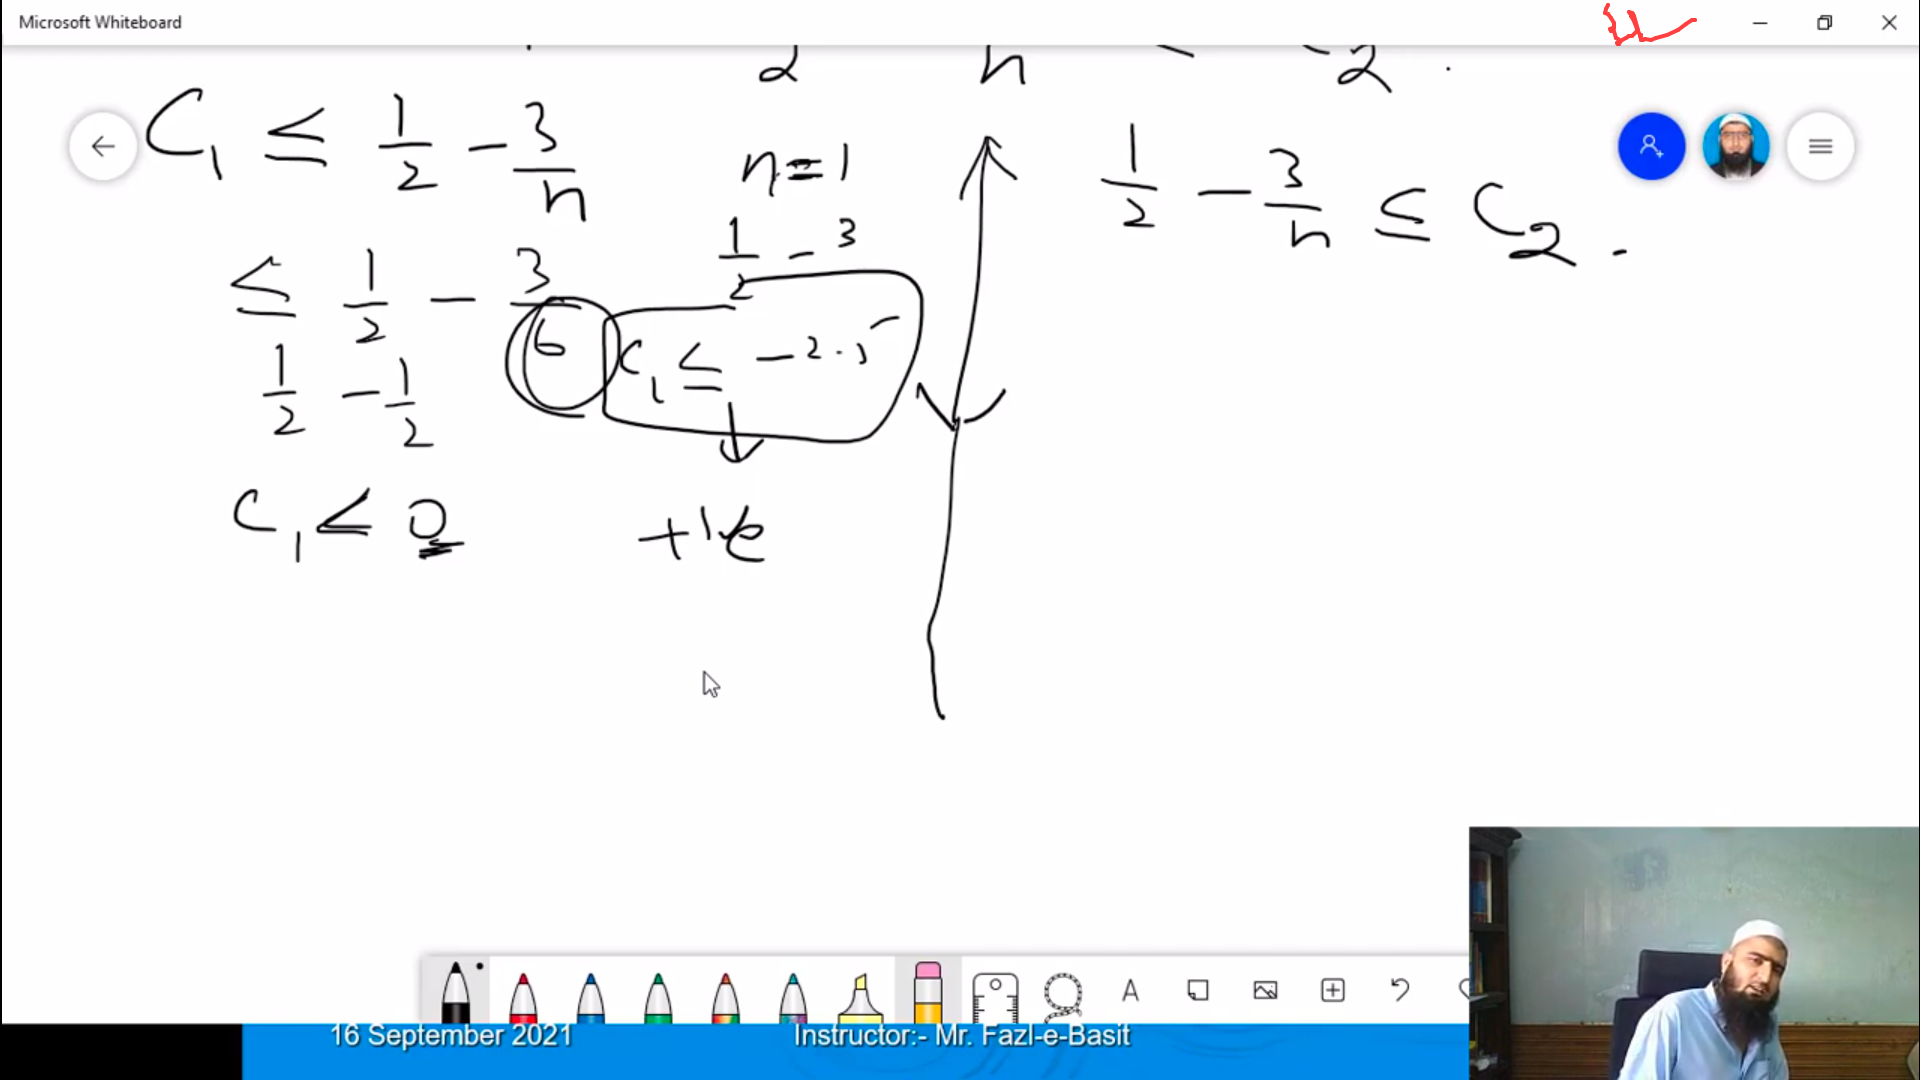 Microsoft Whiteboard
2 n C2 .
C1 ≤ 1/2 - 3/n
n = 1
1/2 - 3/n ≤ C2 .
1/2 - 3
≤ 1/2 - 3/6
C1 ≤ -2.5
1/2 - 1/2
C1 ≤ 0
+ive
A
16 September 2021
Instructor:- Mr. Fazl-e-Basit